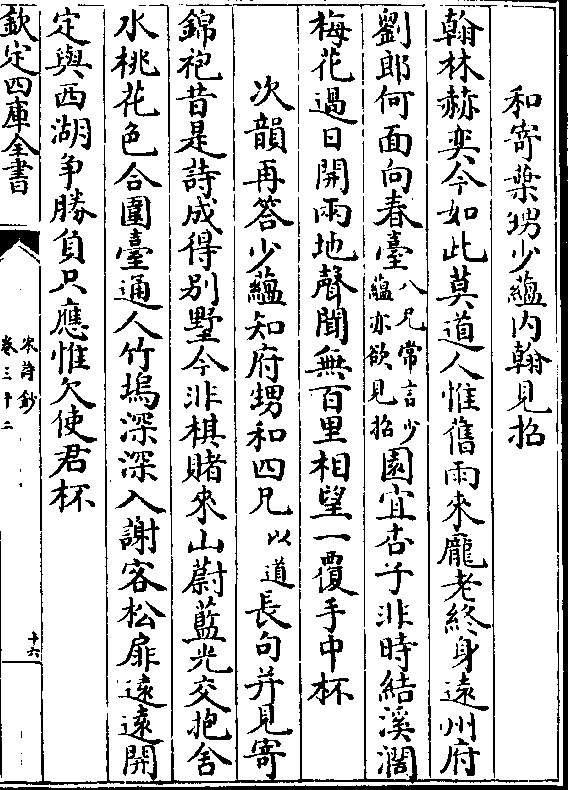 和寄葉甥少蘊內翰見招
翰林赫奕今如此莫道人惟舊雨來龐老終身遠州府
劉郎何面向春臺八兄常言少蘊亦欲見招園宜杏子非時結溪濶
梅花過日開兩地聲聞無百里相望一覆手中杯
次韻再答少蘊知府甥和四兄以道長句并見寄
錦袍昔是詩成得别墅今非棋賭來山蔚藍光交抱舍
水桃花色合圍臺通人竹塢深深入謝客松扉遠遠開
定與西湖争勝負只應惟欠使君杯
欽定四庫全書
宋詩鈔
卷三十二
十六